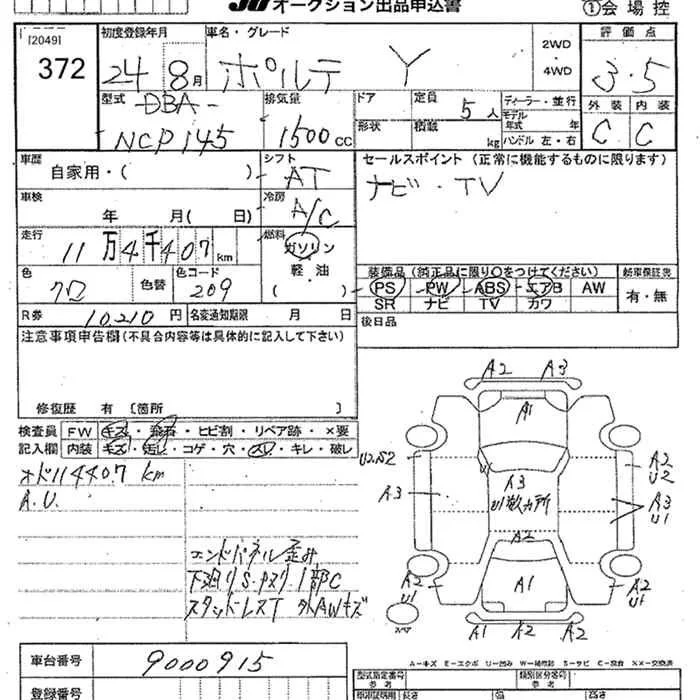 JU オークション出品申込書
①会場控
[2049]
372
初度登録年月
24 8月
車名・グレード
ポルテ Y
2WD
・
4WD
評価点
3.5
外装 内装
C C
型式
DBA-
NCP145
排気量
1500cc
ドア
形状
定員
5人
積載
kg
ディーラー・並行
モデル年式 年
ハンドル 左・右
車歴
自家用・( )
シフト
AT
セールスポイント(正常に機能するものに限ります)
ナビ・TV
車検
年 月( 日)
冷房
A/C
走行
11万4千407km
燃料
ガソリン
軽・油
( )
色
クロ
色替
色コード
209
装備品(純正品に限り○をつけてください)
PS PW ABS エアB AW
SR ナビ TV カワ
新車保証書
有・無
R券
10,210円
名変通知期限 月 日
後日品
注意事項申告欄(不具合内容等は具体的に記入して下さい)
修復歴 有 〔箇所 〕
検査員 FW キズ・飛石・ヒビ割・リペア跡・×要
記入欄 内装 キズ・汚レ・コゲ・穴・スレ・キレ・破レ
オド114407km
A.U.
エンドパネル歪み
下廻りS・サスリ1部C
スタッドレスT 外AWキズ
A2 A3
A1
U2,S2
A2
U2
A3
A3
U1数カ所
A3
U1
A2
A2
U1
A1
A2
U1
スペア
A1 A2 A2
A-キズ E-エクボ U-凹み W-補修跡 S-サビ C-腐食 XX-交換済
車台番号
9000915
登録番号
型式指定番号
参考
類別区分番号
参考
長さ
幅
高さ